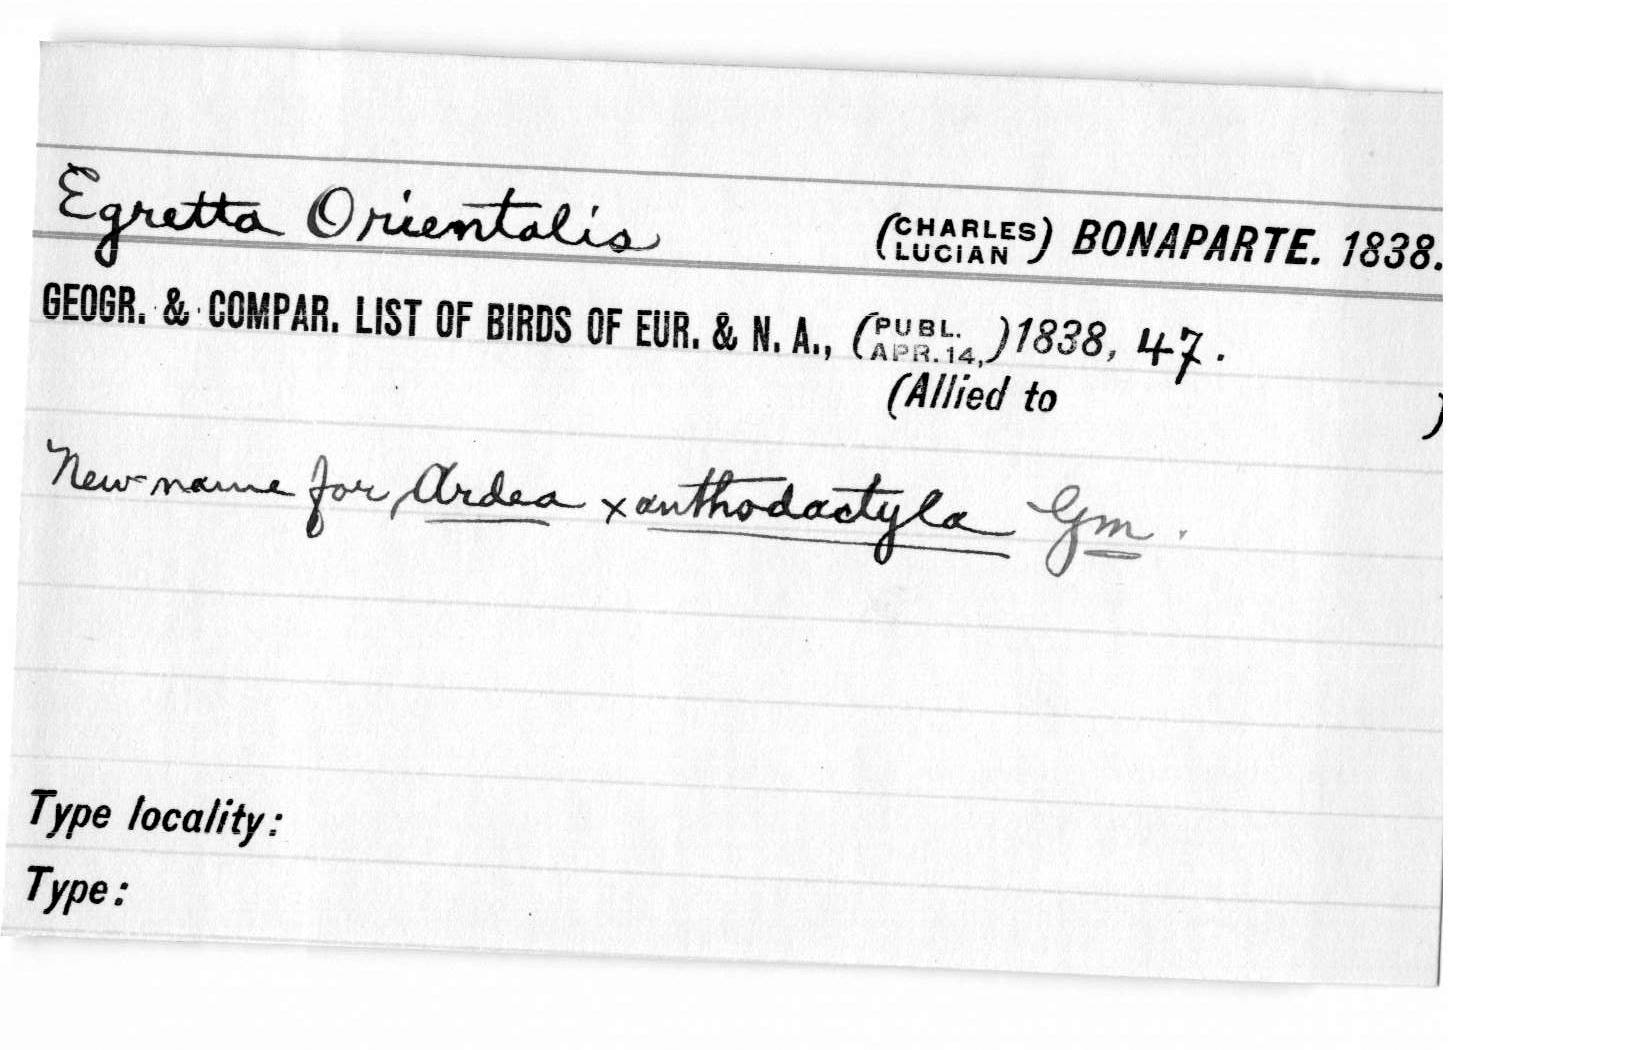 Egretta Orientalis (CHARLES LUCIAN) BONAPARTE. 1838.
GEOGR. & COMPAR. LIST OF BIRDS OF EUR. & N. A., (PUBL. APR. 14,) 1838, 47.
(Allied to )
New name for Ardea xanthodactyla Gm.
Type locality:
Type: